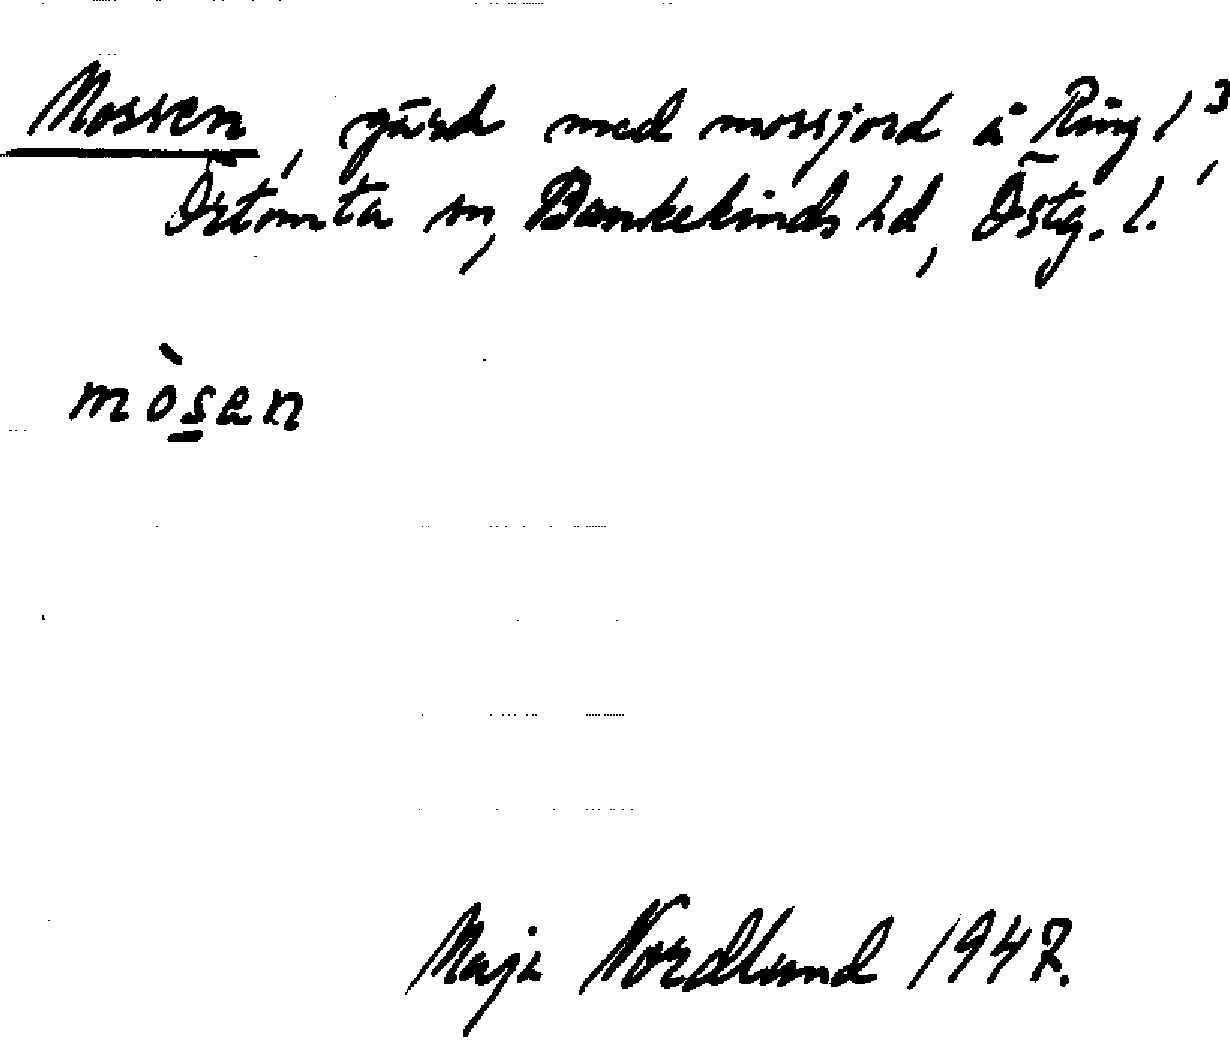 Mossen, gärde med mossjord å Ring 1³,
Örtomta sn, Bankekinds hd, Östg. l.
mòsan
Maja Nordlund 1947.